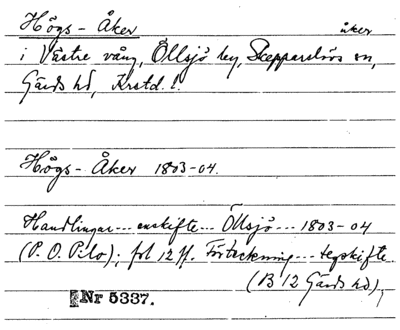 Högs-Åker åker
i Västre vång, Öllsjö by, Skepparslövs sn,
Gärds hd, Krstd. l.
Högs-Åker 1803-04.
Handlingar--- enskifte--- Öllsjö--- 1803-04
(P. O. Pilo); fol 12 ff. Förteckning--- tegskifte.
(B 12 Gärds hd),
Nr 5337.